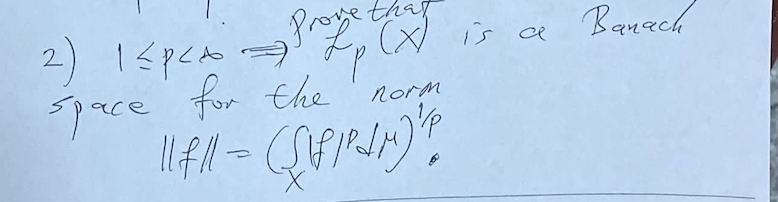 prove that
2) 1 ≤ p < ∞ ⟹ ℒₚ(X) is a Banach
space for the norm
||f|| = (∫_X |f|^p dμ)^{1/p}.